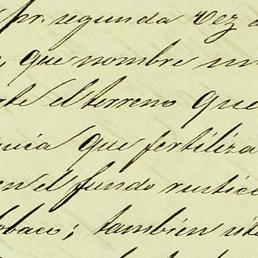 pr. segunda vez
que nombre un
el terreno que
que fertiliza
en el fundo rustico
tambien